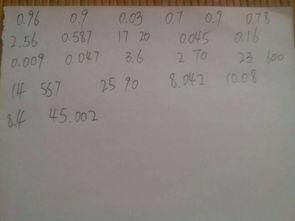 0.96 0.9 0.03 0.7 0.9 0.78
2.56 0.587 17 20 0.045 0.16
0.009 0.047 3.6 2 70 23 600
14 557 25 90 8.042 10.08
8.4 45.002